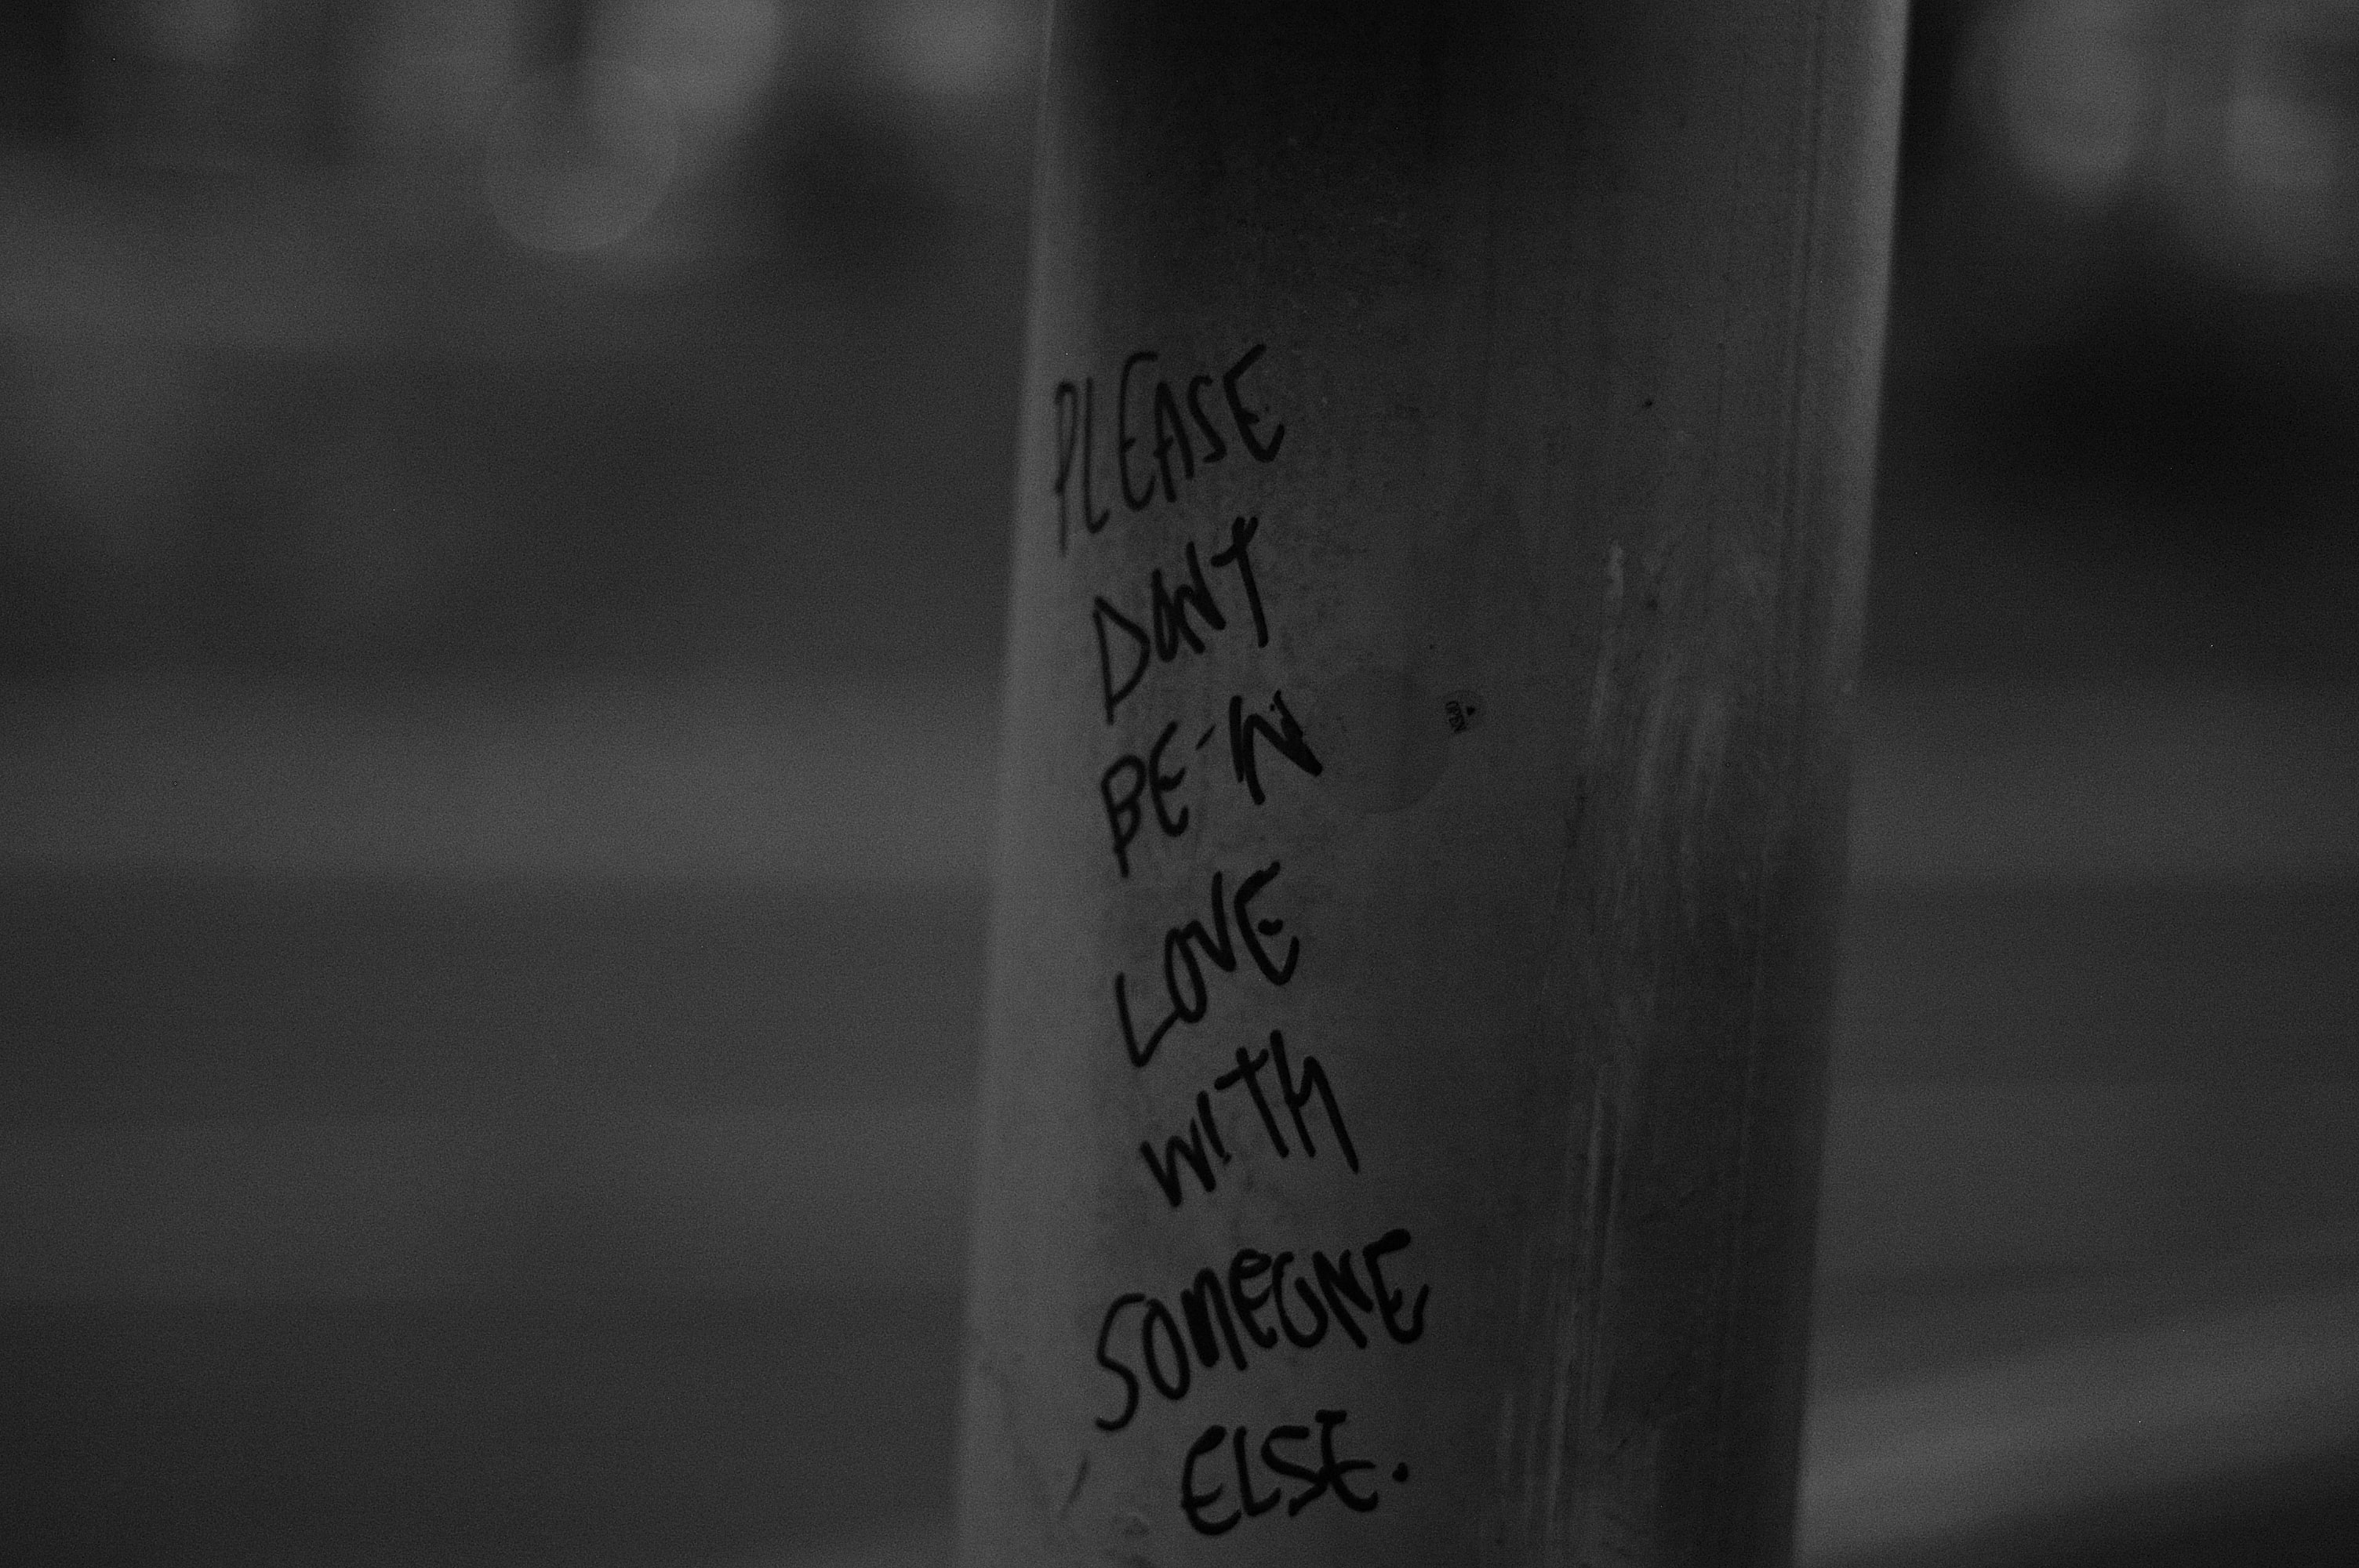 PLEASE
DONT
BE IN
LOVE
WITH
SOMEONE
ELSE.
OPEN